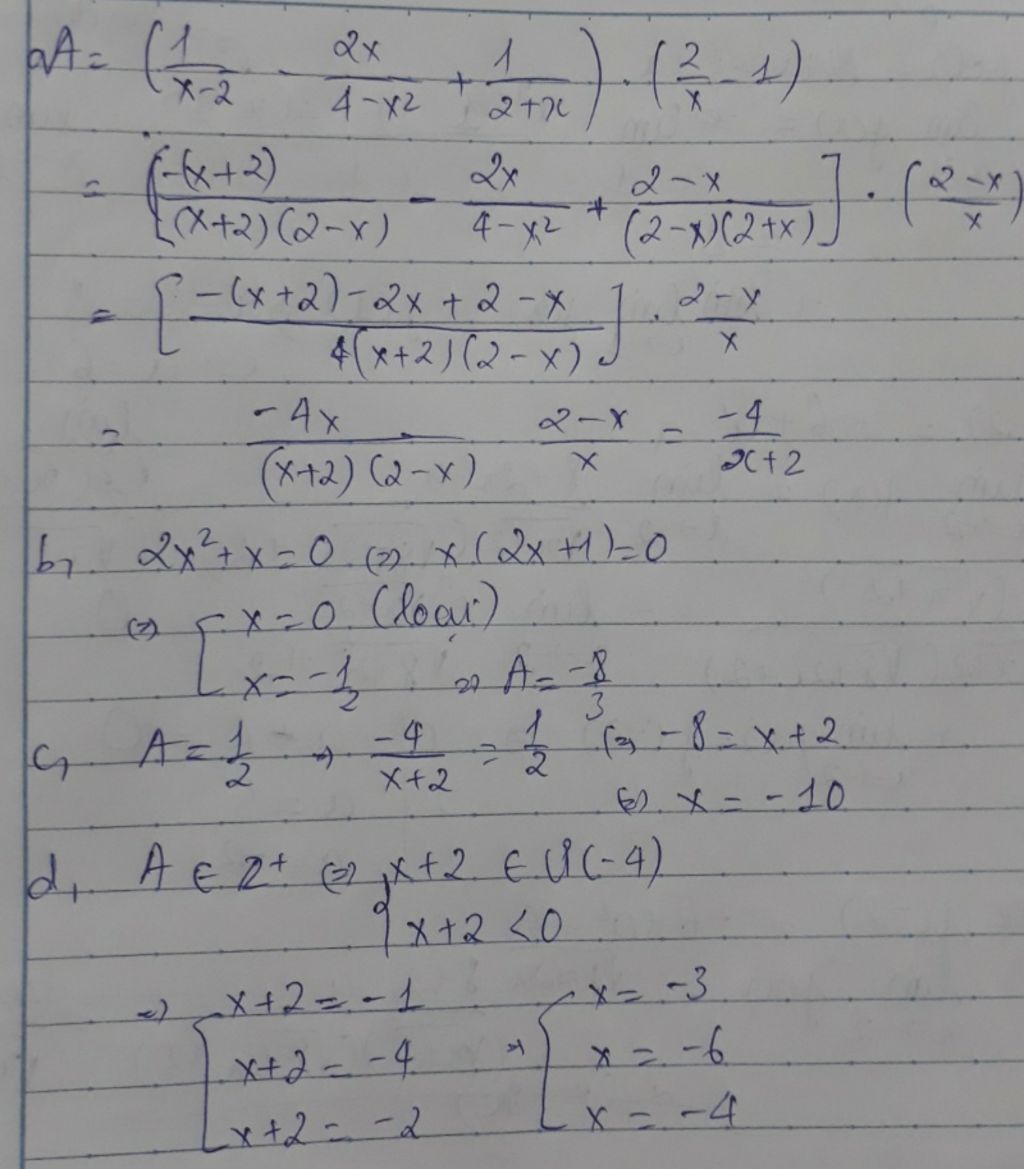 a, A = (1/(x-2) - 2x/(4-x²) + 1/(2+x)) . (2/x - 1)
= [-(x+2)/((x+2)(2-x)) - 2x/(4-x²) + (2-x)/((2-x)(2+x))] . ((2-x)/x)
= [(-(x+2)-2x+2-x)/((x+2)(2-x))] . (2-x)/x
= -4x/((x+2)(2-x)) (2-x)/x = -4/(x+2)
b, 2x²+x=0 (=) x(2x+1)=0
(=) [ x=0 (loại)
x=-1/2 => A=-8/3
c, A=1/2 => -4/(x+2) = 1/2 (=) -8=x+2
(=) x=-10
d, A ∈ Z⁺ (=) { x+2 ∈ Ư(-4)
x+2 <0
=) [ x+2=-1 => [ x=-3
x+2=-4 x=-6
x+2=-2 x=-4